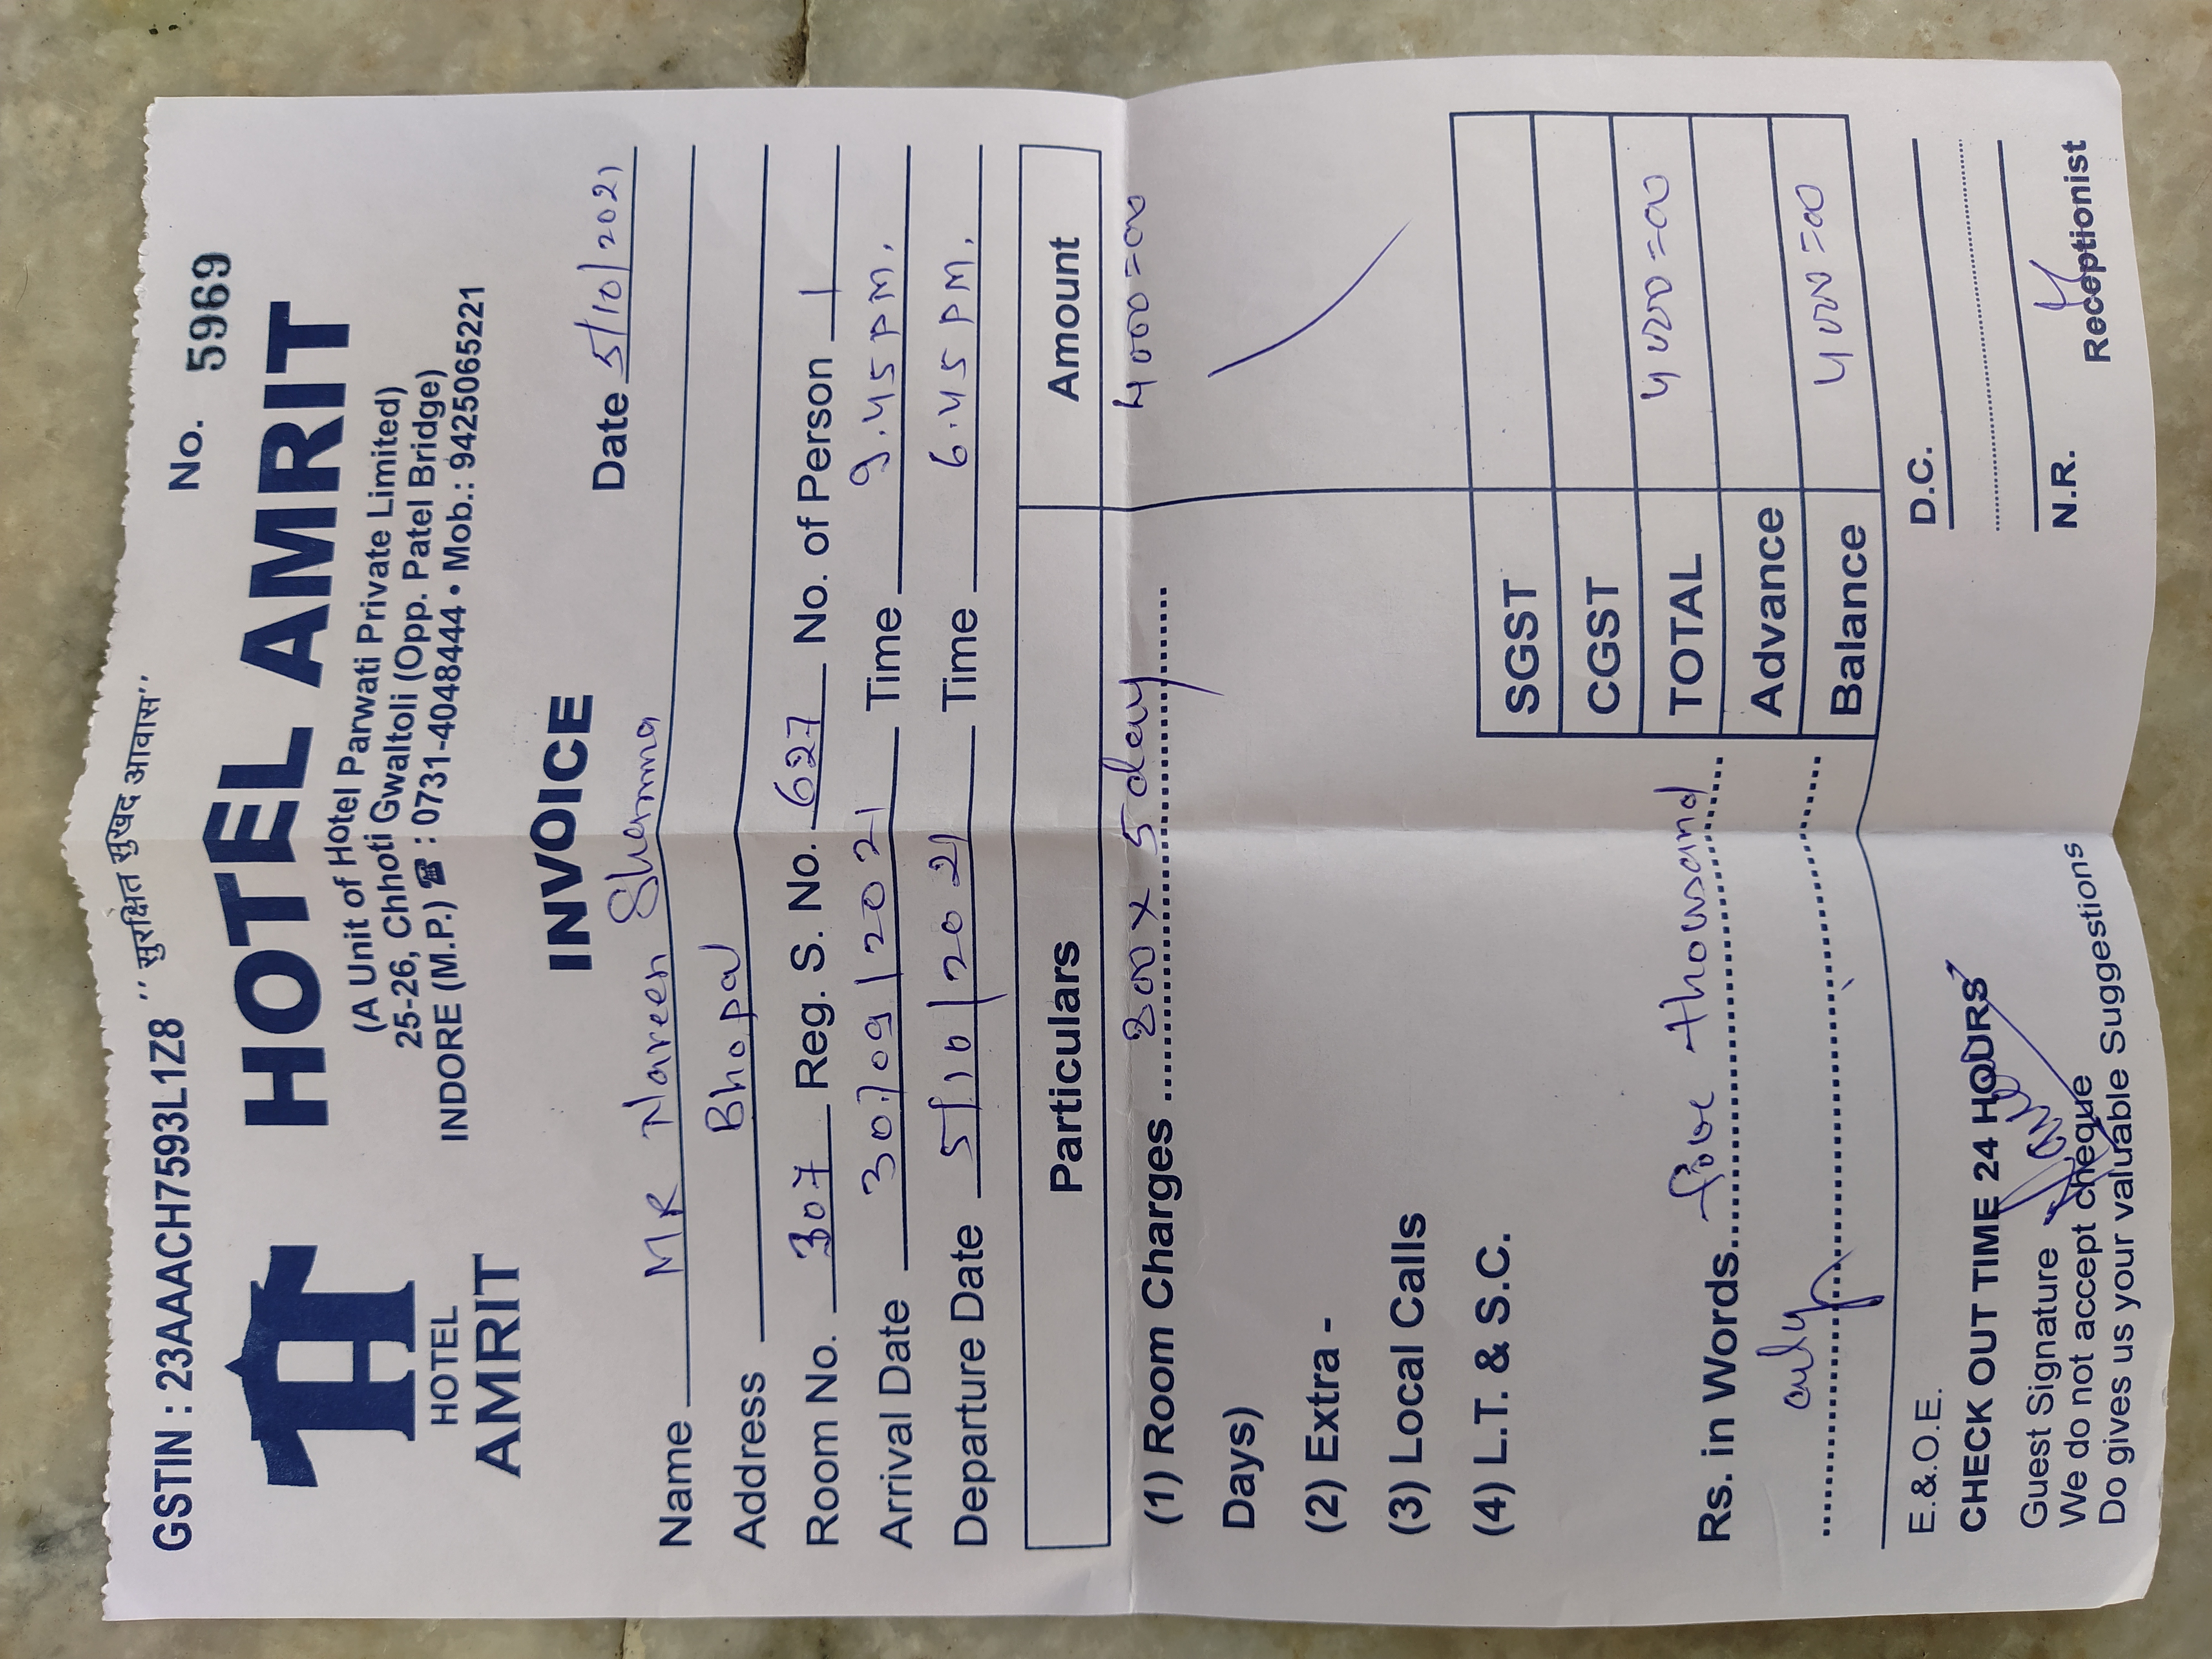 GSTIN : 23AAACH7593L1Z8 " सुरक्षित सुखद आवास" No. 5969
HOTEL AMRIT
HOTEL AMRIT
(A Unit of Hotel Parwati Private Limited)
25-26, Chhoti Gwaltoli (Opp. Patel Bridge)
INDORE (M.P.) ☎ : 0731-4048444 • Mob.: 9425065221
INVOICE
Date 5/10/2021
Name MR Nareen Sharma
Address Bhopal
Room No. 307 Reg. S. No. 627 No. of Person 1
Arrival Date 30/09/2021 Time 9.45 PM.
Departure Date 5/10/2021 Time 6.45 PM.
Particulars Amount
(1) Room Charges 800 x 5 day 4000=00
Days)
(2) Extra -
(3) Local Calls
(4) L.T. & S.C.
SGST
CGST
TOTAL 4000=00
Advance
Balance 4000=00
Rs. in Words fove thousand
only
E.&.O.E. D.C.
CHECK OUT TIME 24 HOURS
Guest Signature N.R.
We do not accept cheque Receptionist
Do gives us your valuable Suggestions